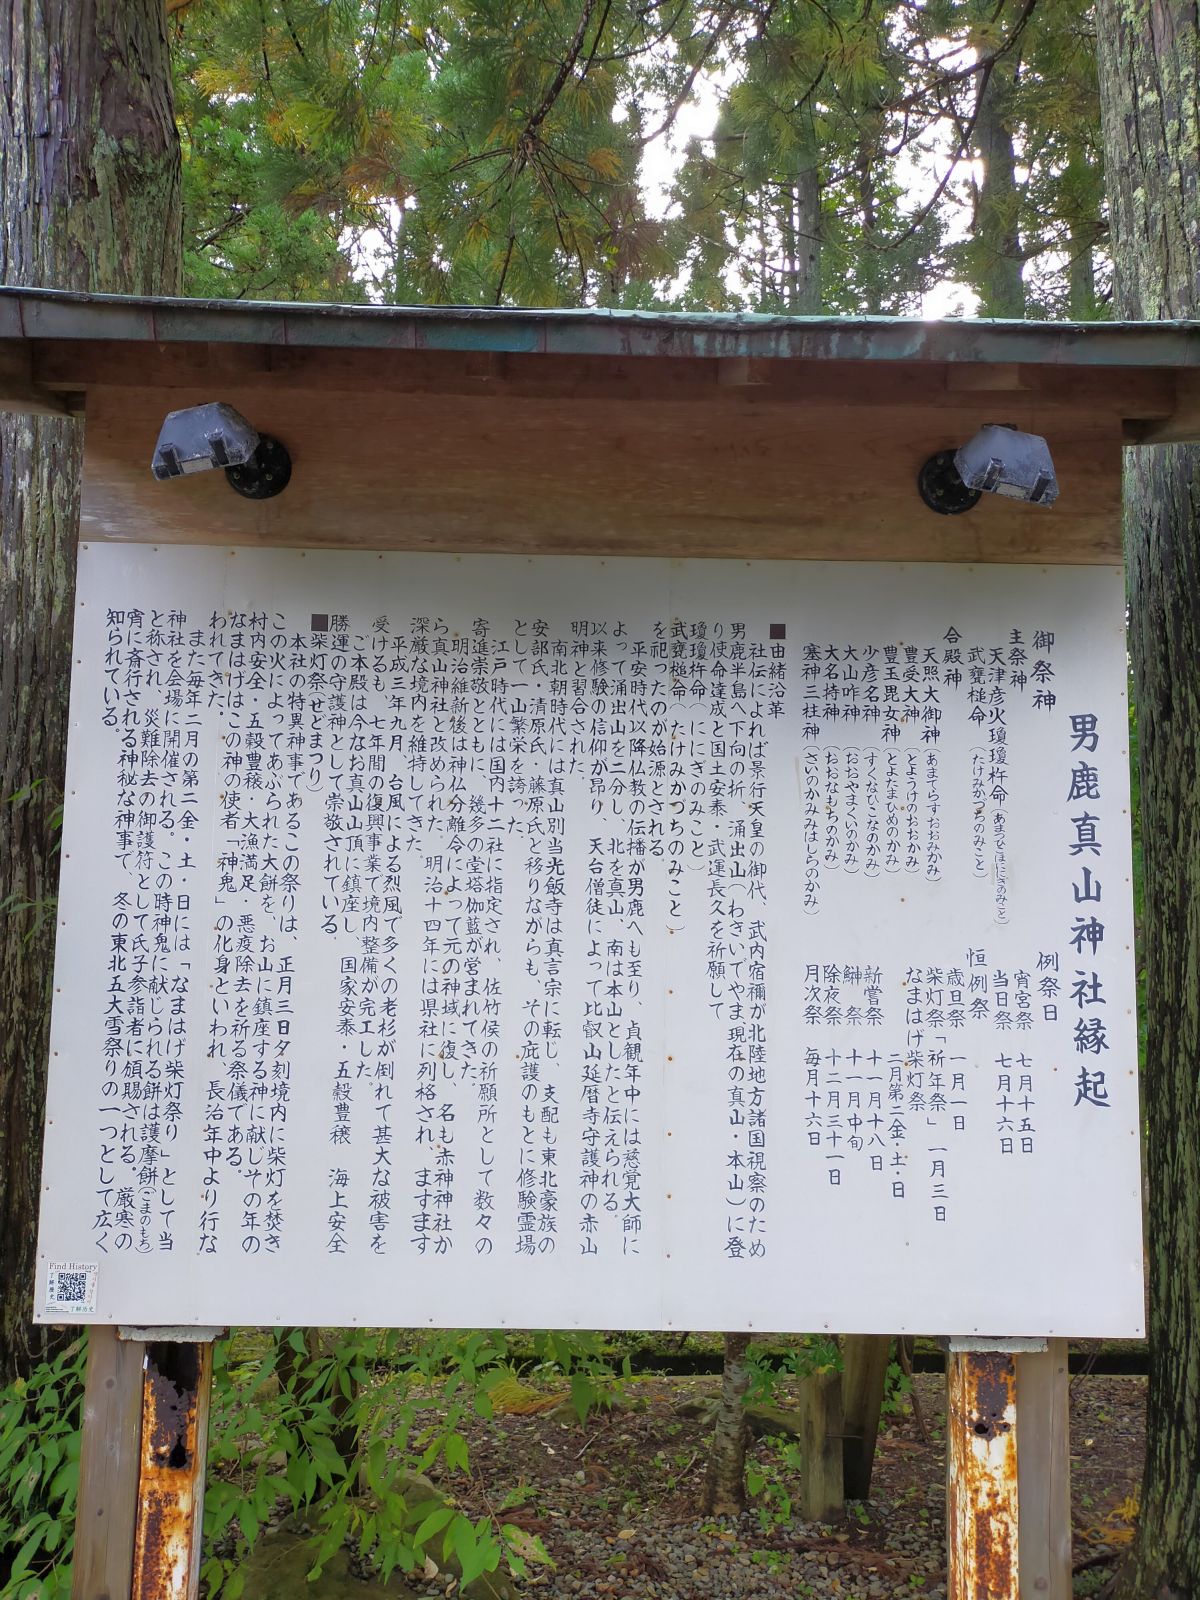 男鹿真山神社縁起
御祭神
主祭神
天津彦火瓊瓊杵命(あまつひこほににぎのみこと)
武甕槌命(たけみかづちのみこと)
合殿神
天照大御神(あまてらすおおみかみ)
豊受大神(とようけのおおかみ)
豊玉毘女神(とよたまひめのかみ)
少彦名神(すくなひこなのかみ)
大山咋神(おおやまくいのかみ)
大名持神(おおなもちのかみ)
塞神三柱神(さいのかみみはしらのかみ)
例祭日
宵宮祭 七月十五日
当日祭 七月十六日
恒例祭
歳旦祭 一月一日
柴灯祭「祈年祭」 一月三日
なまはげ柴灯祭
二月第二金・土・日
新嘗祭 十一月十八日
鰰祭 十一月中旬
除夜祭 十二月三十一日
月次祭 毎月十六日
■由緒沿革
社伝によれば景行天皇の御代、武内宿禰が北陸地方諸国視察のため
男鹿半島へ下向の折、涌出山(わきいでやま現在の真山・本山)に登
り使命達成と国土安泰・武運長久を祈願して
瓊瓊杵命(ににぎのみこと)
武甕槌命(たけみかづちのみこと)
を祀ったのが始源とされる。
平安時代以降仏教の伝播が男鹿へも至り、貞観年中には慈覚大師に
よって涌出山を二分し、北を真山、南は本山としたと伝えられる。
以来修験の信仰が昂り、天台僧徒によって比叡山延暦寺守護神の赤山
明神と習合された。
南北朝時代には真山別当光飯寺は真言宗に転じ、支配も東北豪族の
安部氏・清原氏・藤原氏と移りながらも、その庇護のもとに修験霊場
として一山繁栄を誇った。
江戸時代には国内十二社に指定され、佐竹侯の祈願所として数々の
寄進崇敬とともに、幾多の堂塔伽藍が営まれてきた。
明治維新後は神仏分離令によって元の神域に復し、名も赤神神社か
ら真山神社と改められた。明治十四年には県社に列格され、ますます
深厳な境内を維持してきた。
平成三年九月、台風による烈風で多くの老杉が倒れて甚大な被害を
受けるも、七年間の復興事業で境内整備が完工した。
ご本殿は今なお真山山頂に鎮座し、国家安泰・五穀豊穣 海上安全
勝運の守護神として崇敬されている。
■柴灯祭(せどまつり)
本社の特異神事であるこの祭りは、正月三日夕刻境内に柴灯を焚き
この火によってあぶられた大餅を、お山に鎮座する神に献じその年の
村内安全・五穀豊穣・大漁満足・悪疫除去を祈る祭儀である。
なまはげはこの神の使者「神鬼」の化身といわれ、長治年中より行な
われてきた。
また毎年二月の第二金・土・日には「なまはげ柴灯祭り」として当
神社を会場に開催される。この時神鬼に献じられる餅は護摩餅(ごまのもち)
と称され、災難除去の御護符として氏子参詣者に頒賜される。厳寒の
宵に斎行される神秘な神事で、冬の東北五大雪祭りの一つとして広く
知られている。
Find History
了解歴史
了解历史